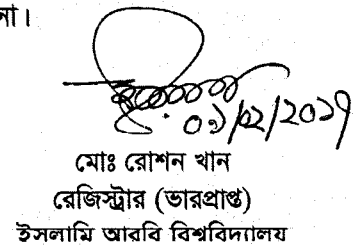 না।
০১/০২/২০১৭
মোঃ রোশন খান
রেজিস্ট্রার (ভারপ্রাপ্ত)
ইসলামি আরবি বিশ্ববিদ্যালয়